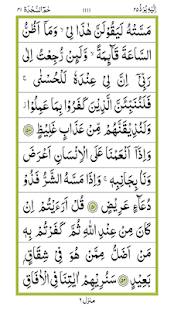 اِلَیْهِ یُرَدُّ ٢٥ ١١١١ حٰمٓ السَّجْدَة ٤١
مَسَّتْهُ لَیَقُوْلَنَّ هٰذَا لِیْ ۙ وَمَاۤ اَظُنُّ
السَّاعَةَ قَآئِمَةً ۙ وَّلَئِنْ رُّجِعْتُ اِلٰی
رَبِّیْۤ اِنَّ لِیْ عِنْدَهٗ لَلْحُسْنٰی ۚ
فَلَنُنَبِّئَنَّ الَّذِیْنَ كَفَرُوْا بِمَا عَمِلُوْا ؗ
وَلَنُذِیْقَنَّهُمْ مِّنْ عَذَابٍ غَلِیْظٍ ۝٥٠
وَاِذَاۤ اَنْعَمْنَا عَلَی الْاِنْسَانِ اَعْرَضَ
وَنَاٰ بِجَانِبِهٖ ۚ وَاِذَا مَسَّهُ الشَّرُّ فَذُوْ
دُعَآءٍ عَرِیْضٍ ۝٥١ قُلْ اَرَءَیْتُمْ اِنْ
كَانَ مِنْ عِنْدِ اللّٰهِ ثُمَّ كَفَرْتُمْ بِهٖ
مَنْ اَضَلُّ مِمَّنْ هُوَ فِیْ شِقَاقٍۭ
بَعِیْدٍ ۝٥٢ سَنُرِیْهِمْ اٰیٰتِنَا فِی الْاٰفَاقِ
منزل ٦